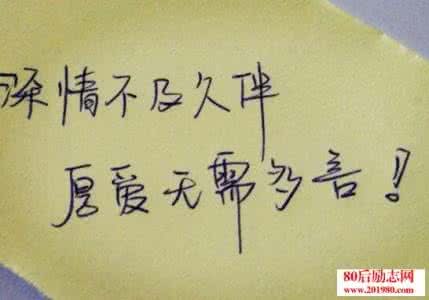 深情不及久伴
厚爱无需多言!
80后励志网
www.201980.com